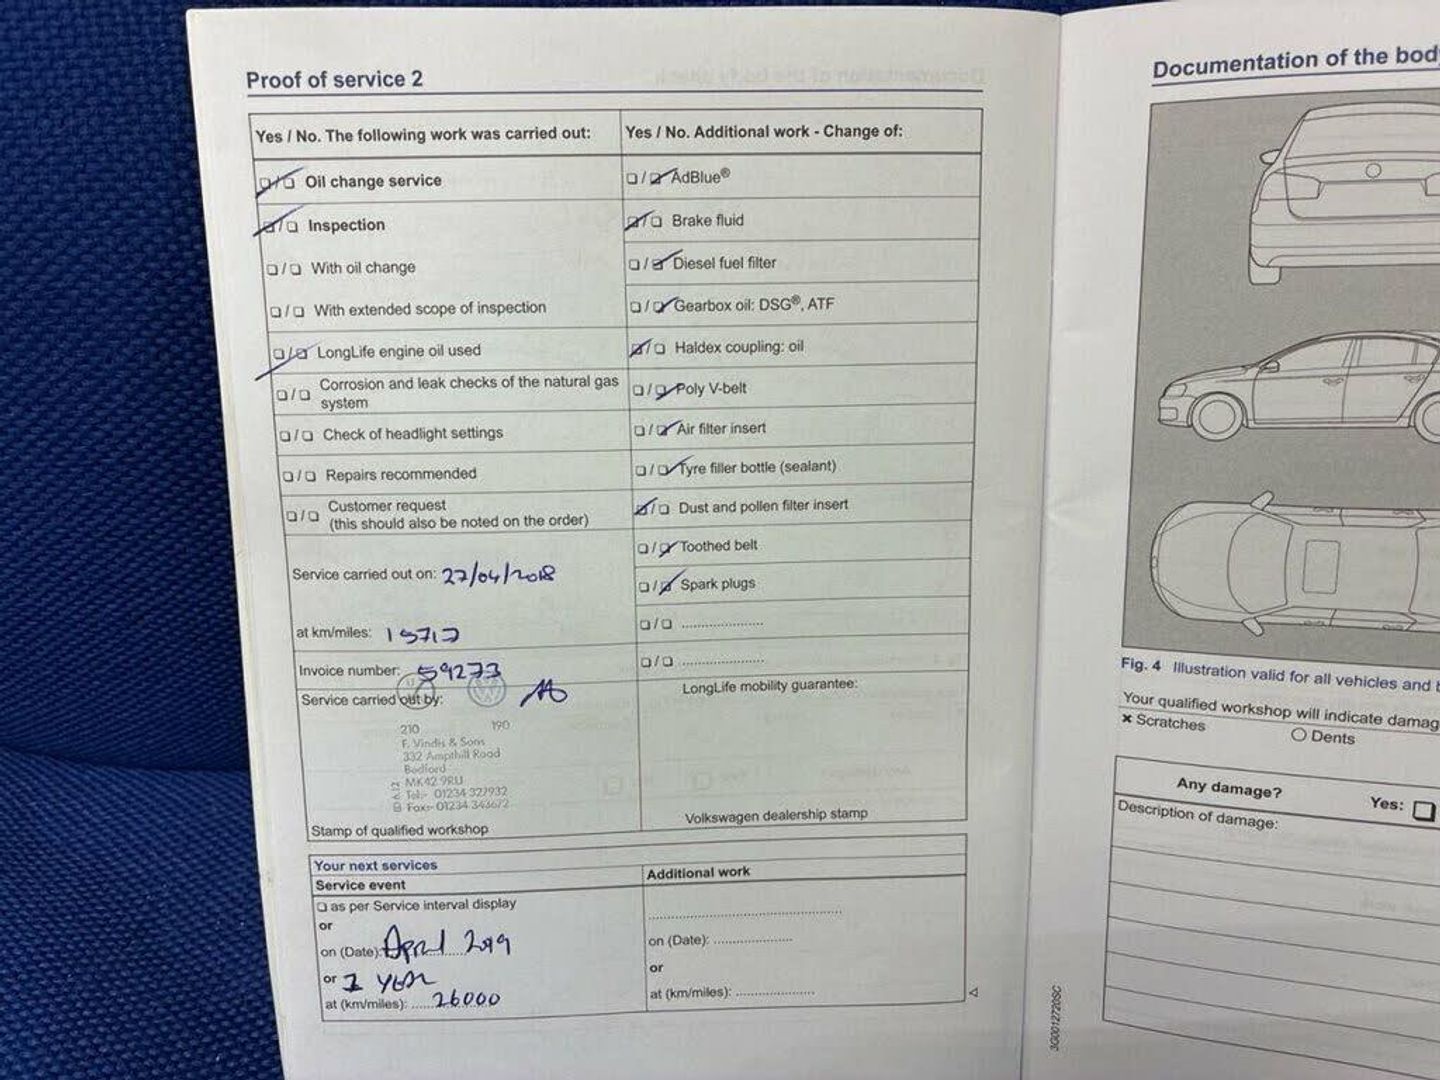 Proof of service 2
Yes / No. The following work was carried out:
Oil change service
Inspection
With oil change
With extended scope of inspection
LongLife engine oil used
Corrosion and leak checks of the natural gas
system
Check of headlight settings
Repairs recommended
Customer request
(this should also be noted on the order)
Service carried out on: 27/04/2018
at km/miles: 15717
Invoice number: 59273
Service carried out by:
210 190
F. Vindis & Sons
332 Ampthill Road
Bedford
MK42 9RU
Tel:- 01234 327932
Fax:- 01234 343672
Stamp of qualified workshop
Yes / No. Additional work - Change of:
AdBlue®
Brake fluid
Diesel fuel filter
Gearbox oil: DSG®, ATF
Haldex coupling: oil
Poly V-belt
Air filter insert
Tyre filler bottle (sealant)
Dust and pollen filter insert
Toothed belt
Spark plugs
LongLife mobility guarantee:
Volkswagen dealership stamp
Your next services
Service event
as per Service interval display
or
on (Date): April 2019
or 1 year
at (km/miles): 26000
Additional work
on (Date):
or
at (km/miles):
Documentation of the body
Fig. 4 Illustration valid for all vehicles and
Your qualified workshop will indicate damag
× Scratches
Dents
Any damage?
Yes:
Description of damage:
3G0012720SC